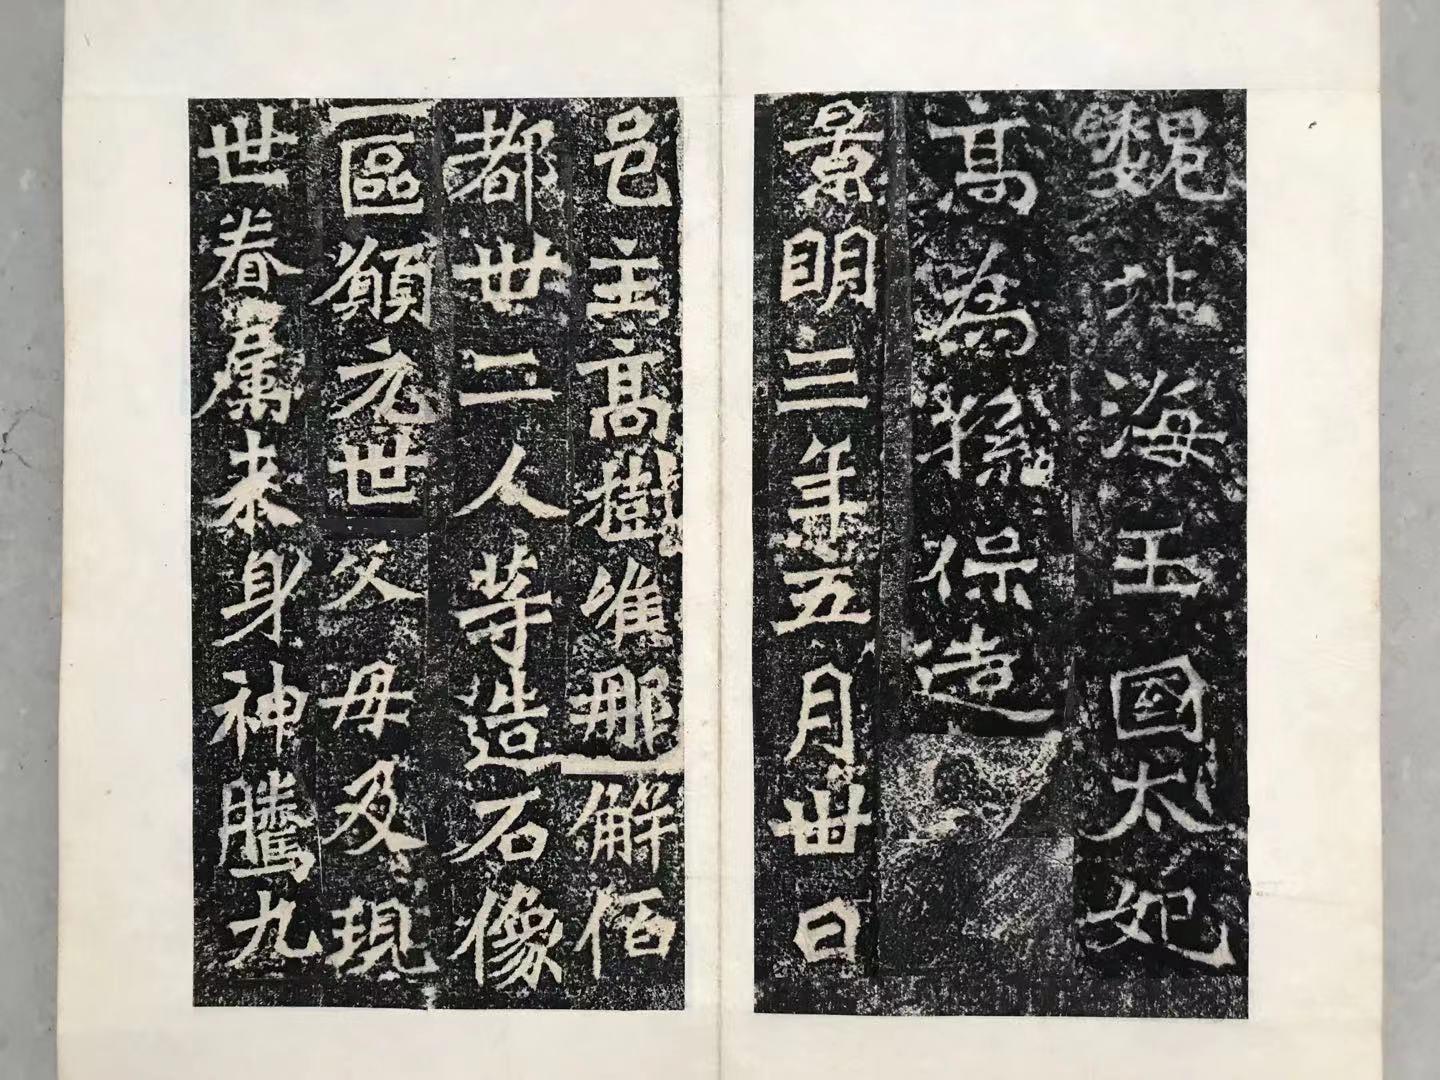 魏北海王國太妃
高為孫保造
景明三年五月卅日
邑主高樹唯那解佰
都卅二人等造石像
一區願元世父母及現
世眷屬來身神騰九